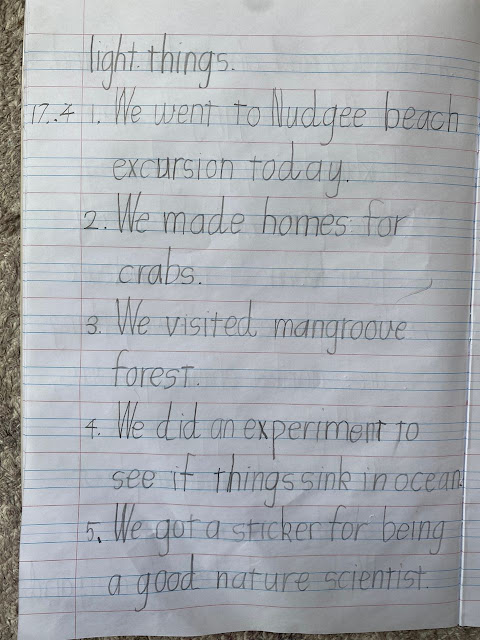 light things.
17..4 1. We went to Nudgee beach
excursion today.
2. We made homes for
crabs.
3. We visited mangroove
forest.
4. We did an experiment to
see if things sink in ocean.
5. We got a sticker for being
a good nature scientist.